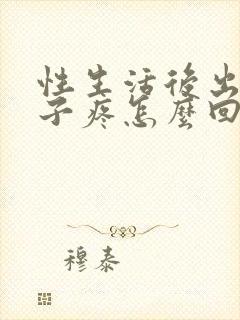 性生活後出
子疼怎麼回
穆泰